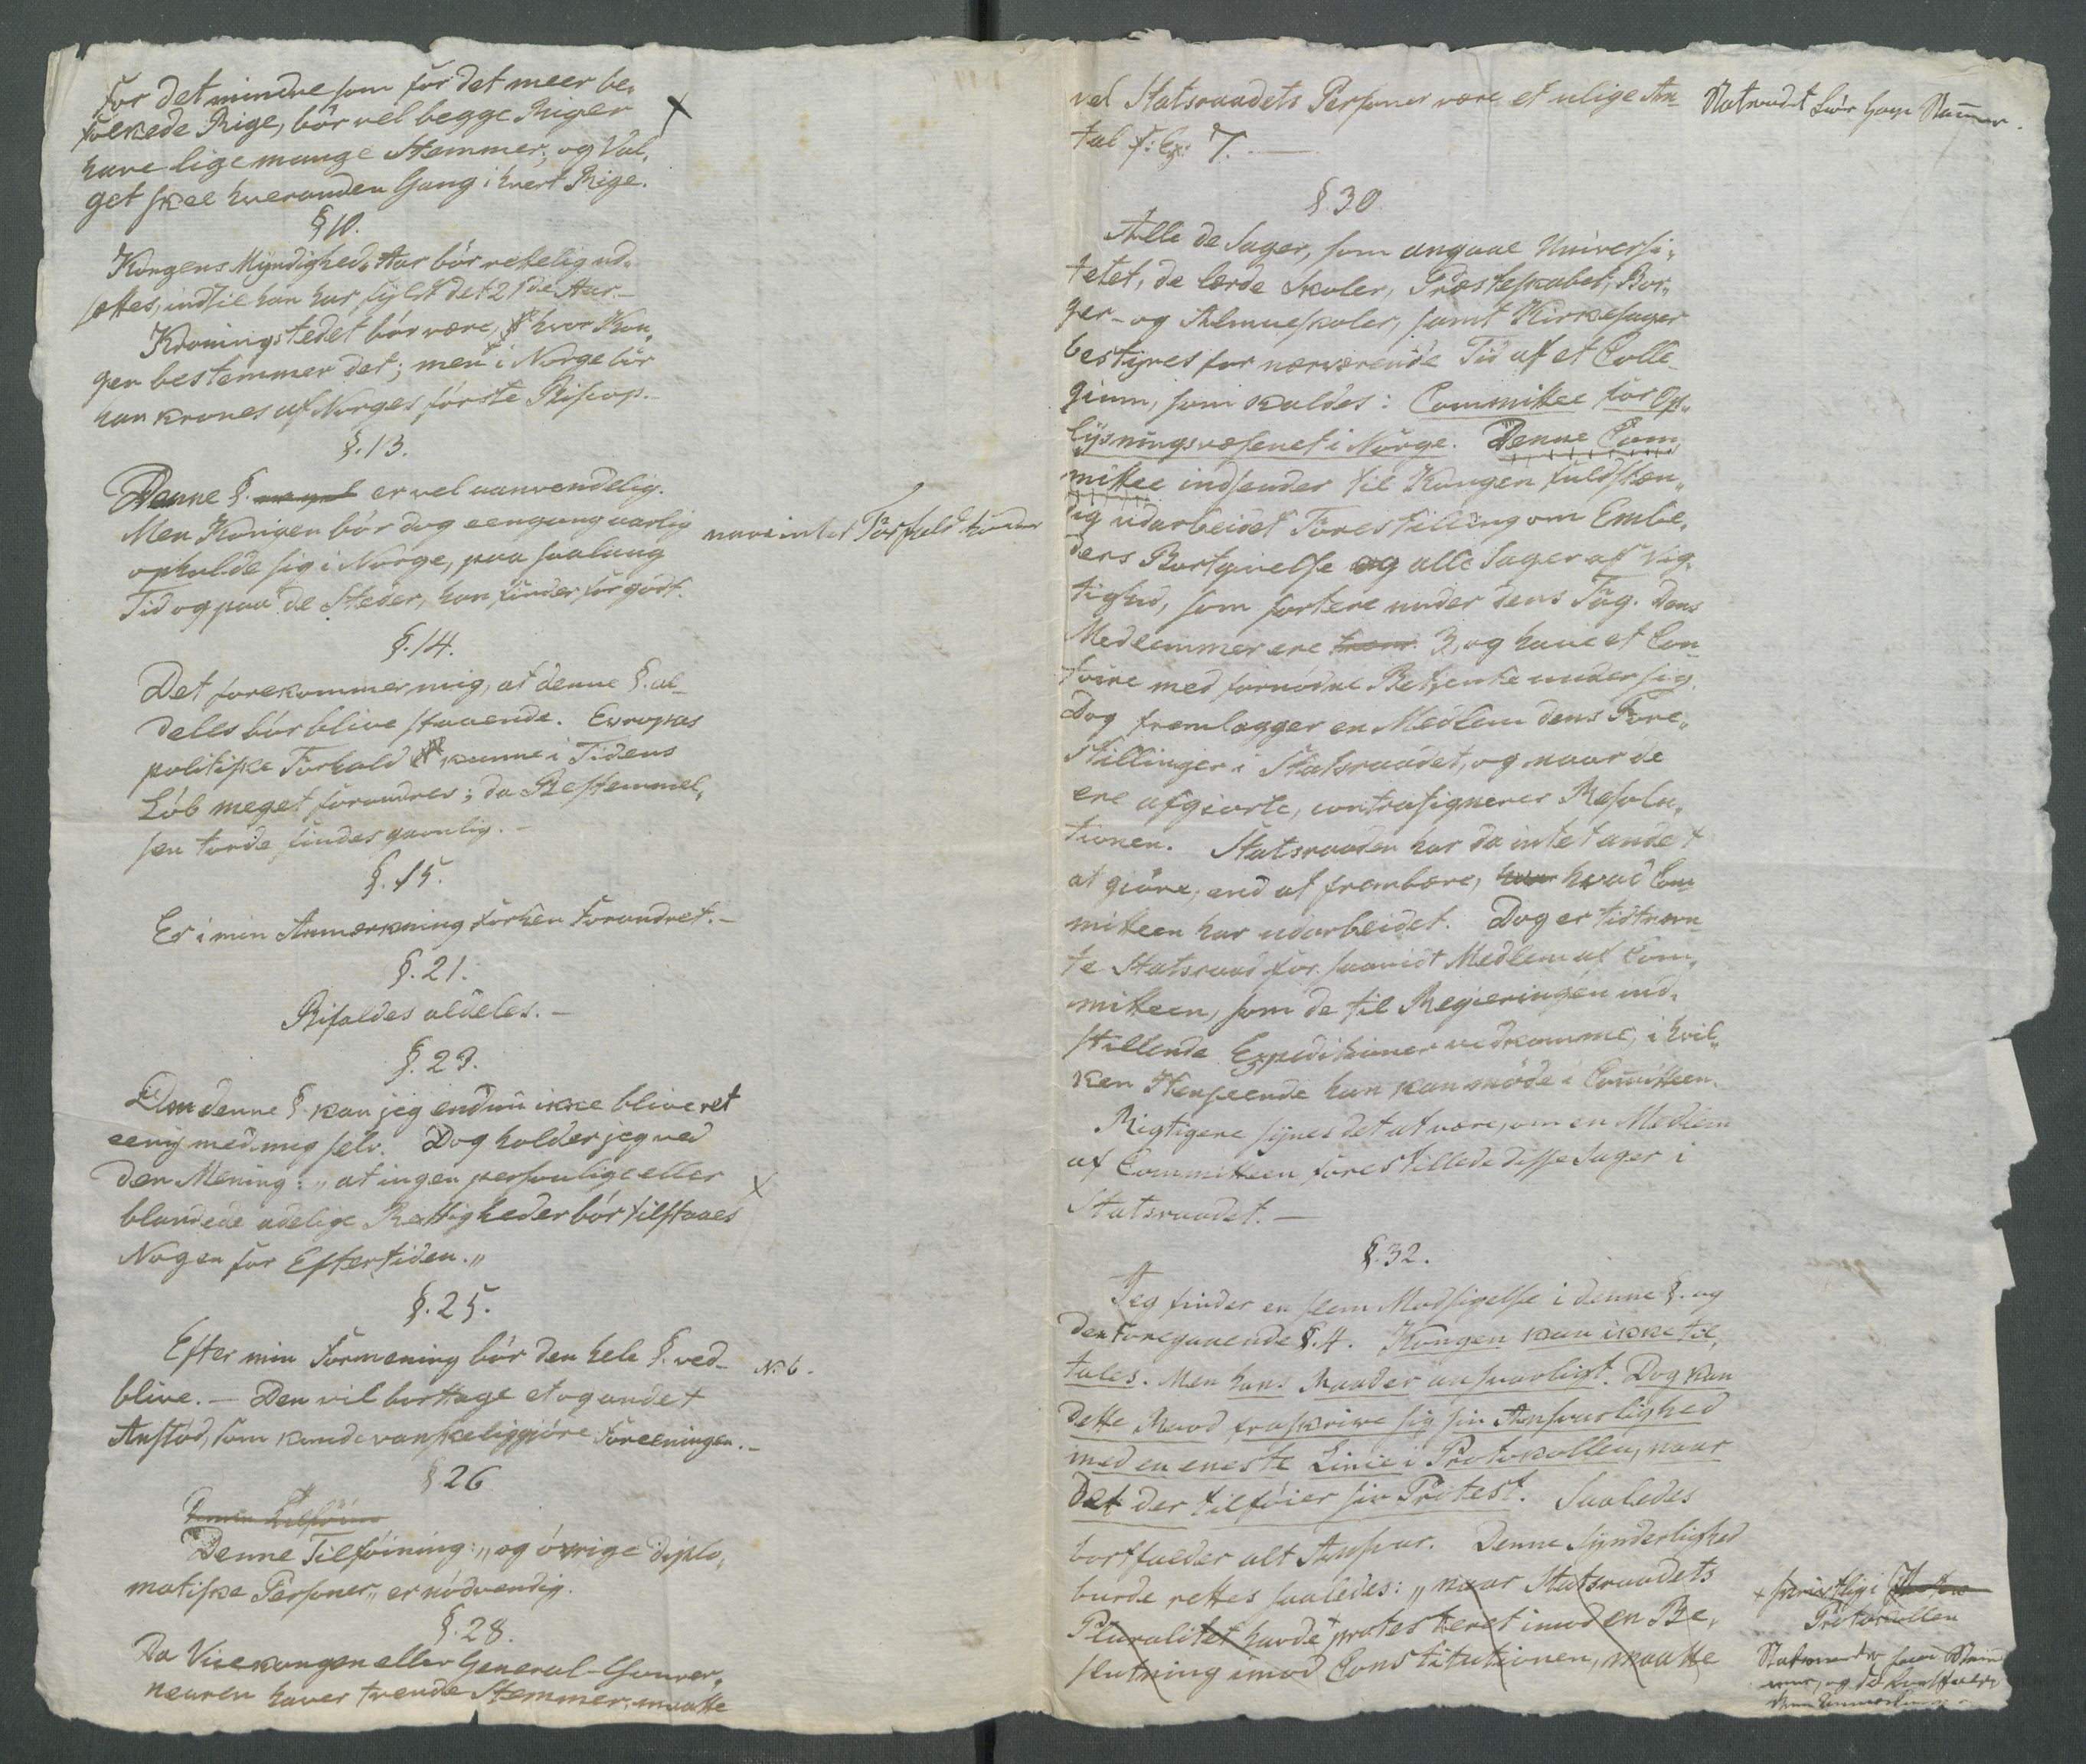 for det mindre som for det meer be„
folkede Rige, bör vel begge Riger
have lige mange Stemmer, og Val„
get skee hveranden Gang i hvert Rige.
X
§ 10.
Kongens Myndigheds Aar bör rettelig ud„
settes, indtil han har fyldt det 21de Aar.–
Kroningstedet bör være, hvor Kon„
gen bestemmer det; men i Norge bör
han krones af Norges förste Biscop.–
§.13.
Denne §. er vel uanvendelig.
Men Kongen bör dog eengang aarlig
opholde sig i Norge, paa saalang
Tid og paa de Steder, han finder for godt.
naar intet Forfald hindrer
§.14.
Det forekommer mig, at denne §. al–
deles bör blive staaende. Europas
politiske Forhold kunne i Tidens
Löb meget forandres; da Bestemmel„
sen torde findes gavnlig.–
§.15.
Er i min Anmærkning forhen forandret.–
§.21.
Bifaldes aldeles.–
§.23.
Om denne §. kan jeg endnu ikke blive ret
eenig med mig selv. Dog holder jeg ved
den Mening: „at ingen personlige eller
blandede adelige Rettigheder bör tilstaaes
Nogen for Eftertiden.„
X
§.25.
Efter min Formening bör den hele §. ved–
blive.– Den vil borttage et og andet
Anstöd, som kunde vanskeliggjöre Foreeningen.–
No 6.
§ 26
Denne Tilföin
Denne Tilföining: „og övrige diplo„
matiske Personer„ er nödvendig.
§.28.
Da Vicekongen eller General-Gouver„
neuren haver tvende Stemmer, maatte
vel Statsraadets Personer være et ulige An–
tal f: Ex: 7.–
Statsraadet bör have
§.30
Alle de Sager, som angaae Universi„
tetet, de lærde Skoler, Præsteskabet, Bor„
ger- og Almueskoler, samt Kirkesager
bestyres for nærværende Tid af et Colle–
gium, som kaldes: Committee for Op„
lysningsvæsenet i Norge. Denne Com„
mittee indsender til Kongen fuldstæn„
dig udarbeidet Forestilling om Embe„
ders Bortgivelse og alle Sager af Vig„
tighed, som sortere under dens Fag. Dens
Medlemmer ere 3, og have et Con–
toire med fornödne Betjente under sig.
Dog fremlægger en Medlem dens Fore„
stillinger i Statsraadet, og naar de
ere afgiorte, contrasignerer Resolu„
tionen. Statsraaden har da intet andet
at giöre, end at frembære, hvad Com–
mitteen har udarbeidet. Dog er tidtnævn–
te Statsraad for saavidt Medlem af Com„
mitteen, som de til Regieringen ind„
stillende Expeditioner vedkomme, i hvil„
ken Henseende han kan möde i Comitteen.
Rigtigere synes det at være, om en Medlem
af Committeen forestillede disse Sager i
Statsraadet.–
§.32.
Jeg finder en slem Modsigelse i denne §. og
den foregaaende §.4. Kongen kan ikke til„
tales. Men hans Raad er ansvarligt. Dog kan
dette Raad fraskrive sig sin Ansvarlighed
med en eneste Linie i Protokollen, naar
det der tilföier sin Protest. Saaledes
bortfalder alt Ansvar. Denne Synderlighed
burde rettes saaledes: „naar Statsraadets
Pluralitet havde + protesteret imod en Be„
slutning imod Constitutionen, maatte
+ skriftlig i
Protokollen